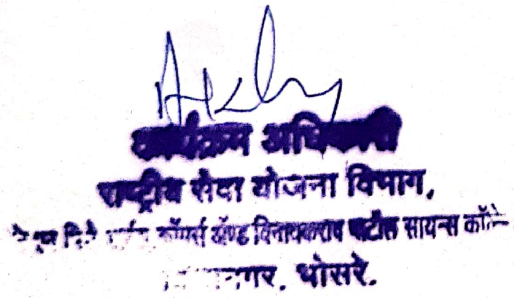 कार्यक्रम अधिकारी
राष्ट्रीय सेवा योजना विभाग,
कॉमर्स ॲण्ड विनायकराव पाटील सायन्स कॉले
नगर, भोसरे.